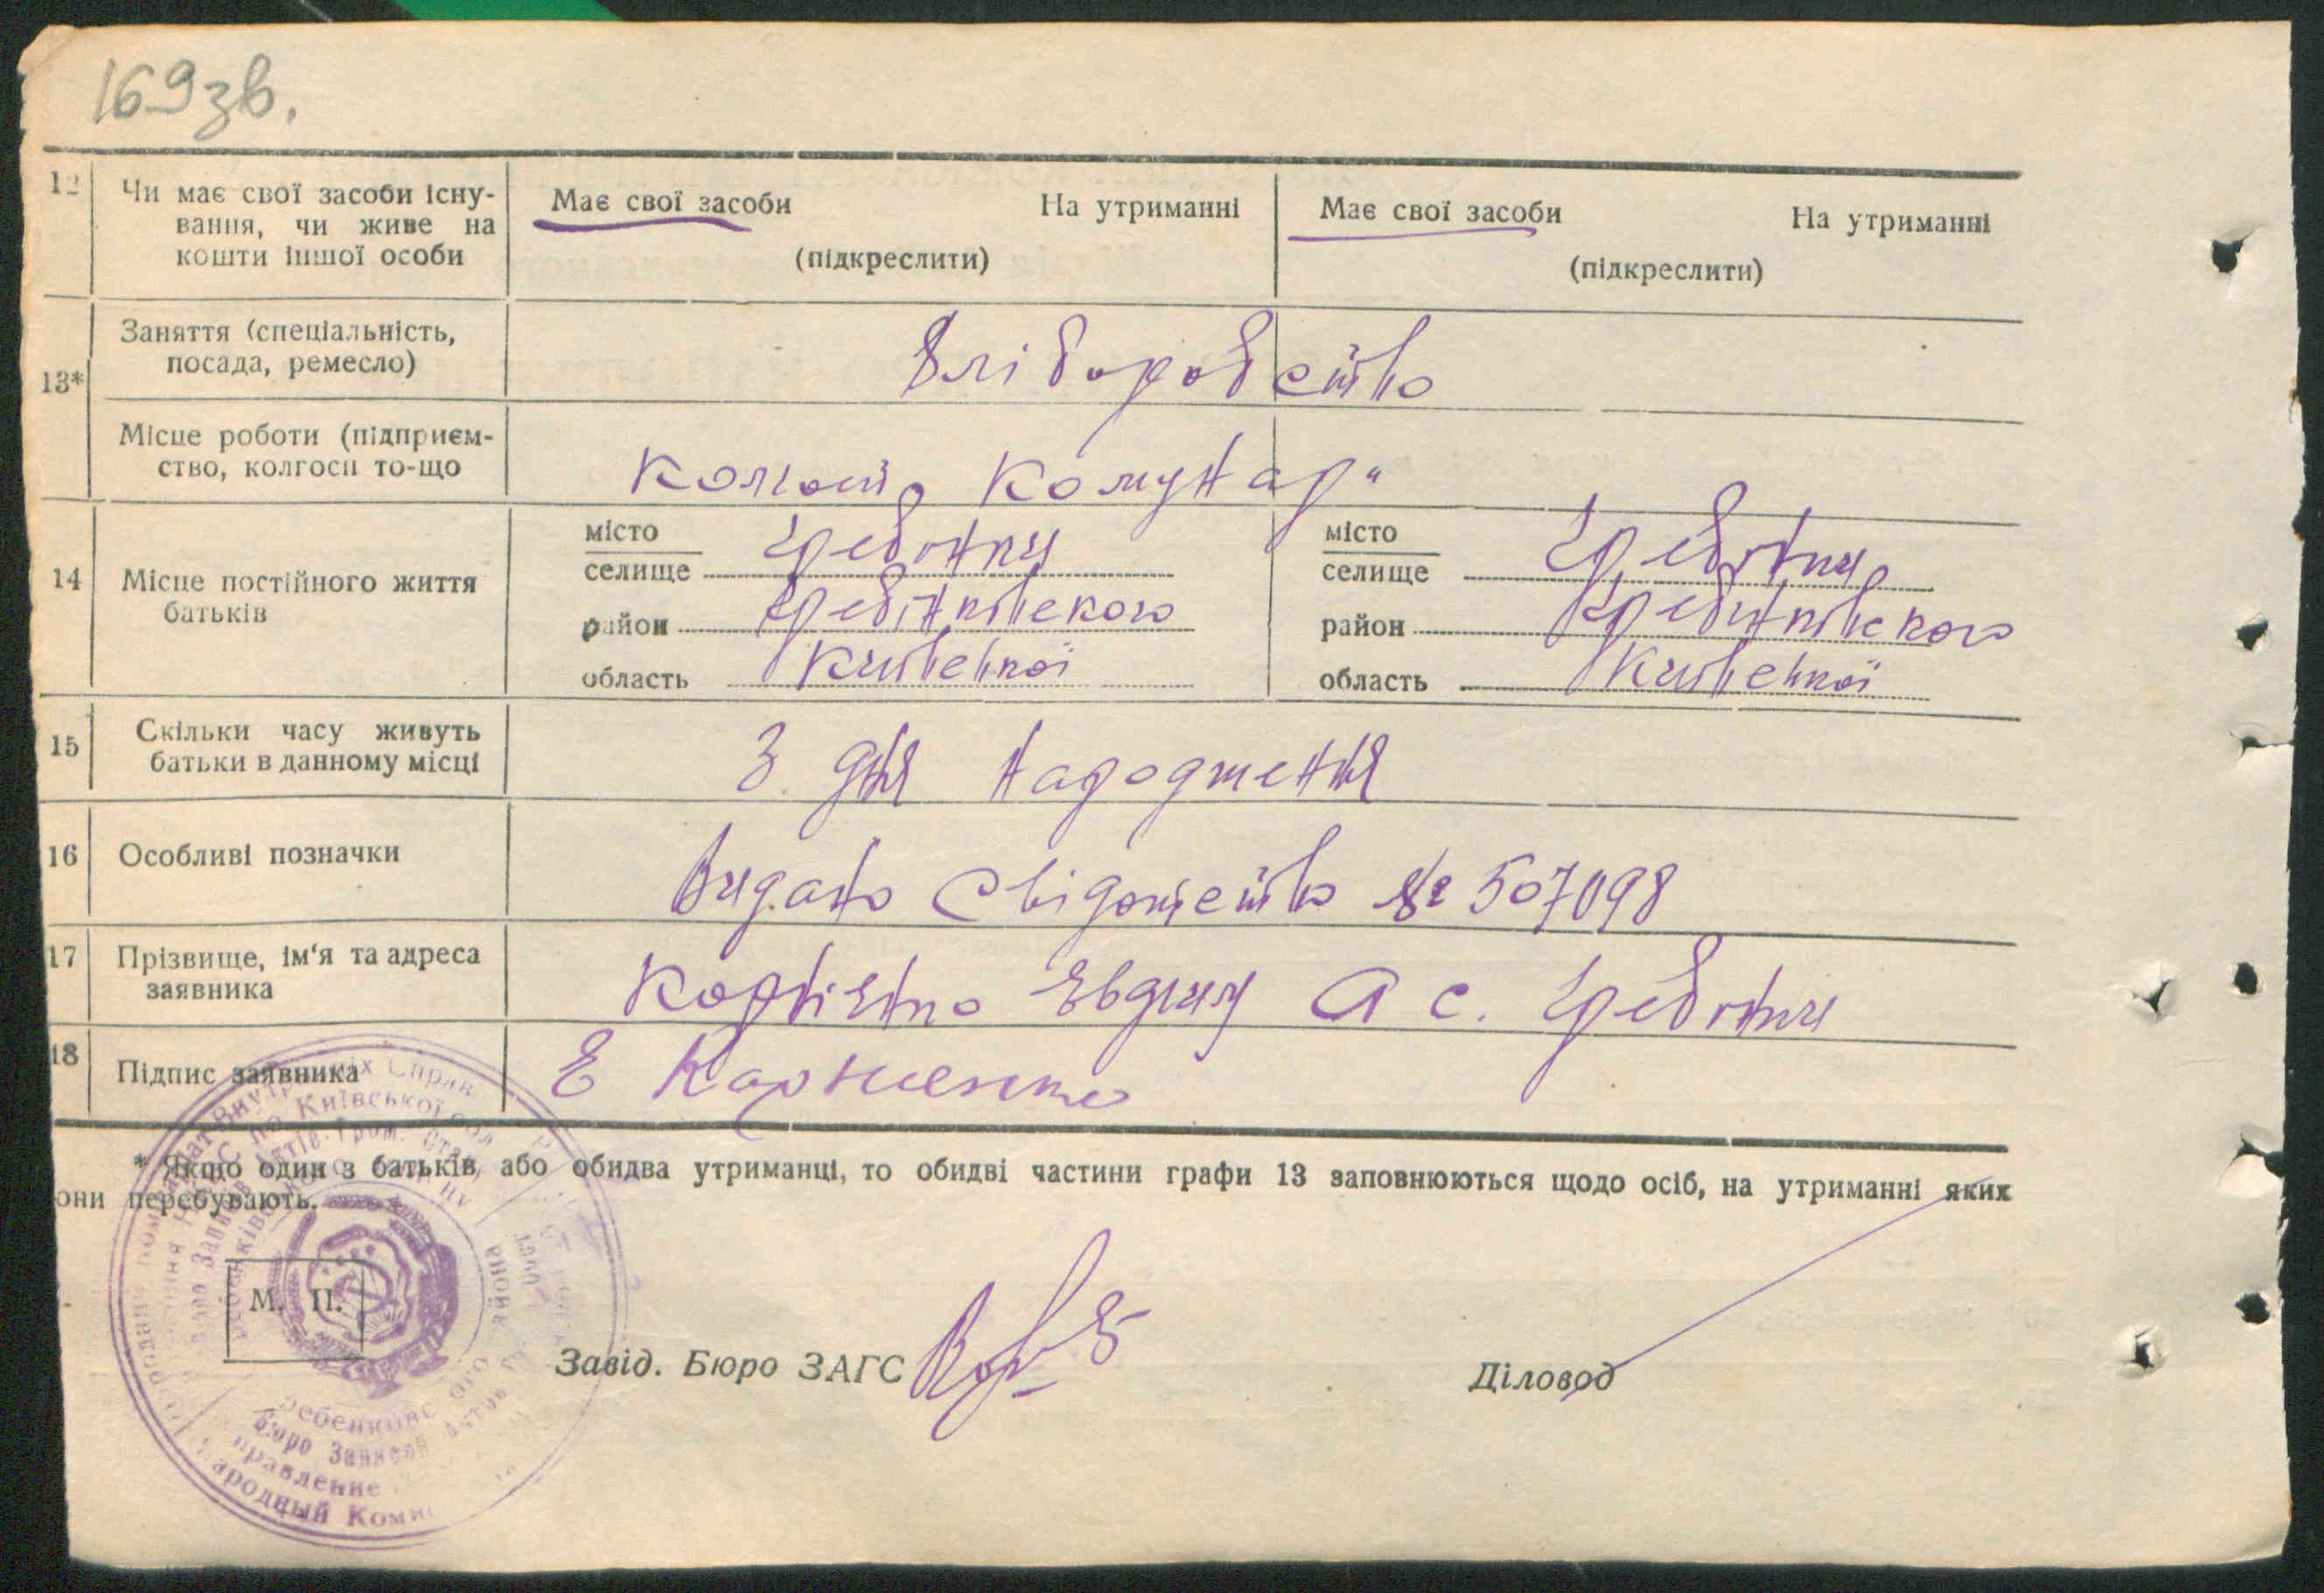 169зв.
12 Чи має свої засоби існу-
вання, чи живе на
кошти іншої особи
Має свої засоби На утриманні
(підкреслити)
Має свої засоби На утриманні
(підкреслити)
13*
Заняття (спеціальність,
посада, ремесло)
Хліборобство
Місце роботи (підприєм-
ство, колгосп то-що
Колгосп „Комунар"
14 Місце постійного життя
батьків
місто
селище Гребінки
район Гребінківского
область Київської
місто
селище Гребінки
район Гребінківского
область Київської
15 Скільки часу живуть
батьки в данному місці
З дня народження
16 Особливі позначки
Видано Свідоцтво № 507098
17 Прізвище, ім'я та адреса
заявника
Корнієнко Евдким А с. Гребінки
18 Підпис заявника
Е Корниенко
* Якщо один з батьків або обидва утриманці, то обидві частини графи 13 заповнюються щодо осіб, на утриманні яких
они перебувають.
М. П.
Завід. Бюро ЗАГС
Діловод
Бюро
правление
Народный Коми